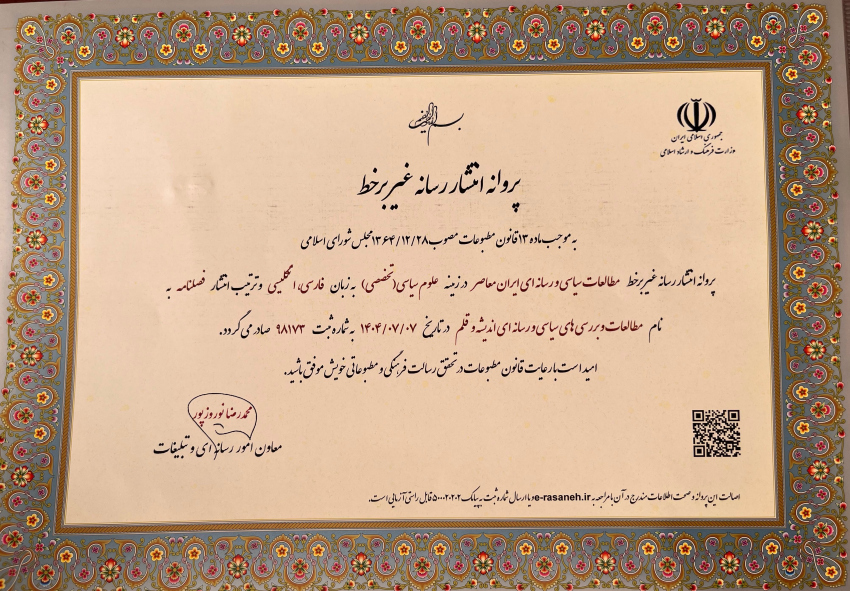 بسم الله الرحمن الرحیم
جمهوری اسلامی ایران
وزارت فرهنگ و ارشاد اسلامی
پروانه انتشار رسانه غیر برخط
به موجب ماده ۱۳ قانون مطبوعات مصوب ۱۳۶۴/۱۲/۲۸ مجلس شورای اسلامی
پروانه انتشار رسانه غیر برخط مطالعات سیاسی و رسانه ای ایران معاصر در زمینه علوم سیاسی (تخصصی) به زبان فارسی، انگلیسی و ترتیب انتشار فصلنامه به
نام مطالعات و بررسی های سیاسی و رسانه ای اندیشه و قلم در تاریخ ۱۴۰۴/۰۷/۰۷ به شماره ثبت ۹۸۱۷۳ صادر می گردد.
امید است با رعایت قانون مطبوعات در تحقق رسالت فرهنگی و مطبوعاتی خویش موفق باشید.
محمدرضا نوروزپور
معاون امور رسانه ای و تبلیغات
اصالت این پروانه و صحت اطلاعات مندرج در آن با مراجعه به e-rasaneh.ir و یا ارسال شماره ثبت به پیامک ۵۰۰۰۲۰۲۰۲ قابل راستی آزمایی است.